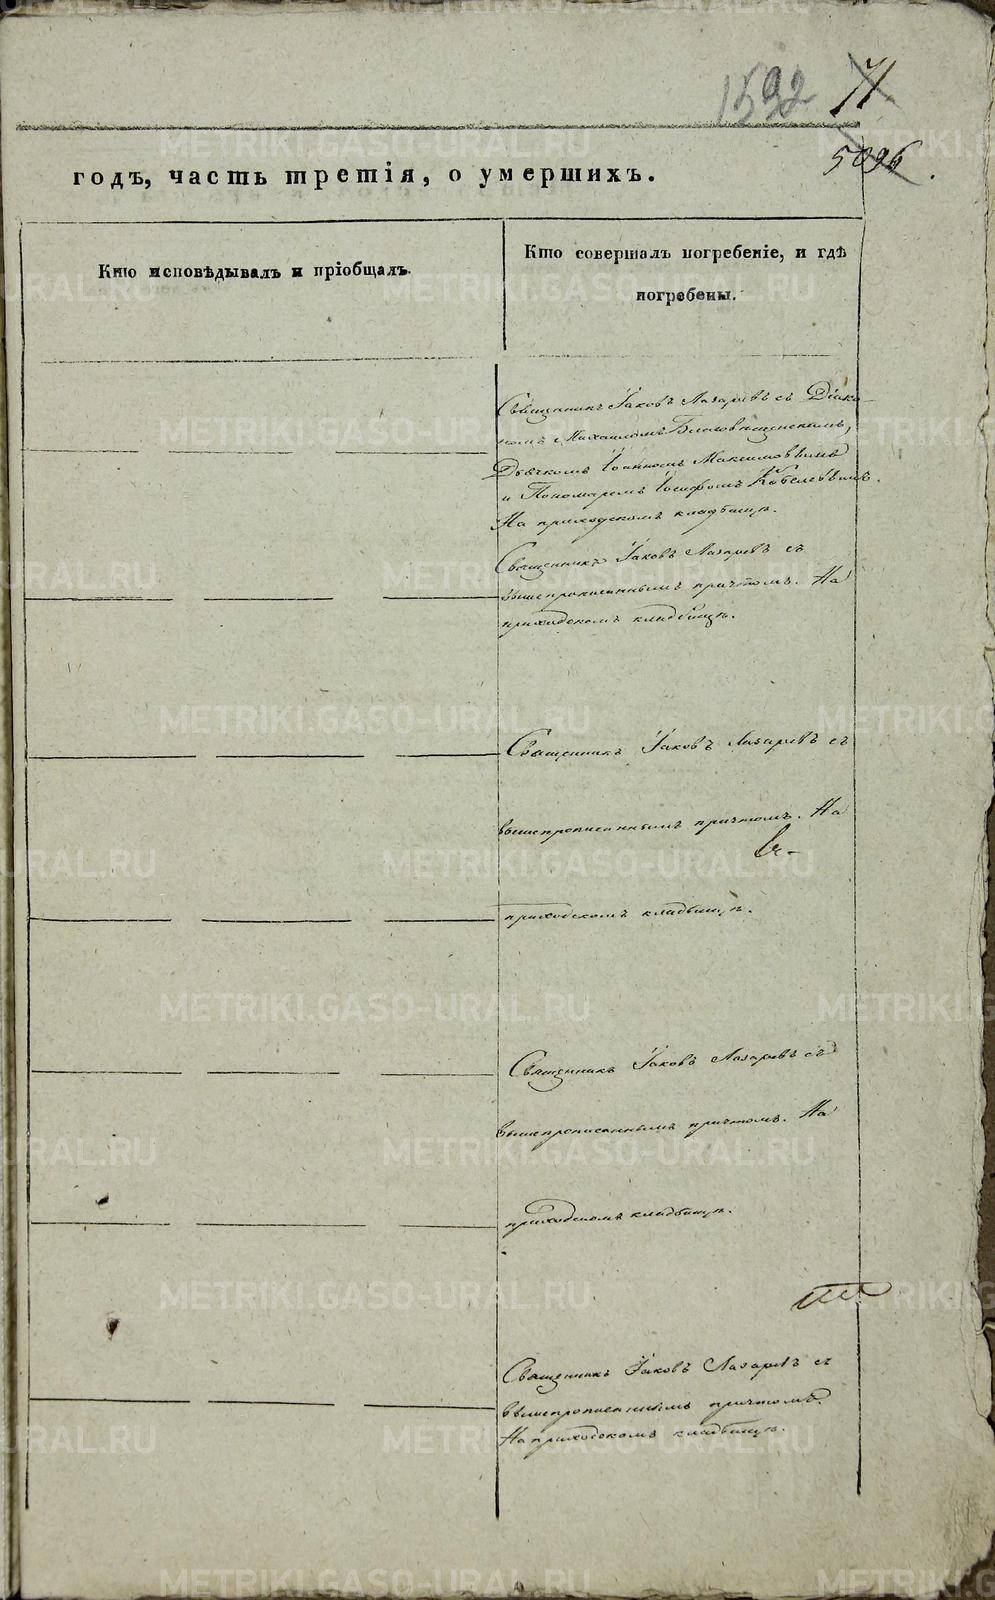 1592 71
5096.
годъ, часть третія, о умершихъ.
Кто исповѣдывалъ и пріобщалъ.
Кто совершалъ погребеніе, и гдѣ
погребены.
Священникъ Іаковъ Лазаревъ съ Діако-
номъ Михаиломъ Благовѣщенскимъ,
Дьячкомъ Іоанномъ Максимовымъ
и Пономаремъ Іосифомъ
На приходскомъ кладбищѣ.
Священникъ Іаковъ Лазаревъ съ
вышепрописаннымъ причтомъ. На
приходскомъ кладбищѣ.
Священникъ Іаковъ Лазаревъ съ
вышепрописаннымъ причтомъ. На
приходскомъ кладбищѣ.
Священникъ Іаковъ Лазаревъ съ
вышепрописаннымъ причтомъ. На
приходскомъ кладбищѣ.
Священникъ Іаковъ Лазаревъ съ
вышепрописаннымъ причтомъ.
На приходскомъ кладбищѣ.
METRIKI.GASO-URAL.RU